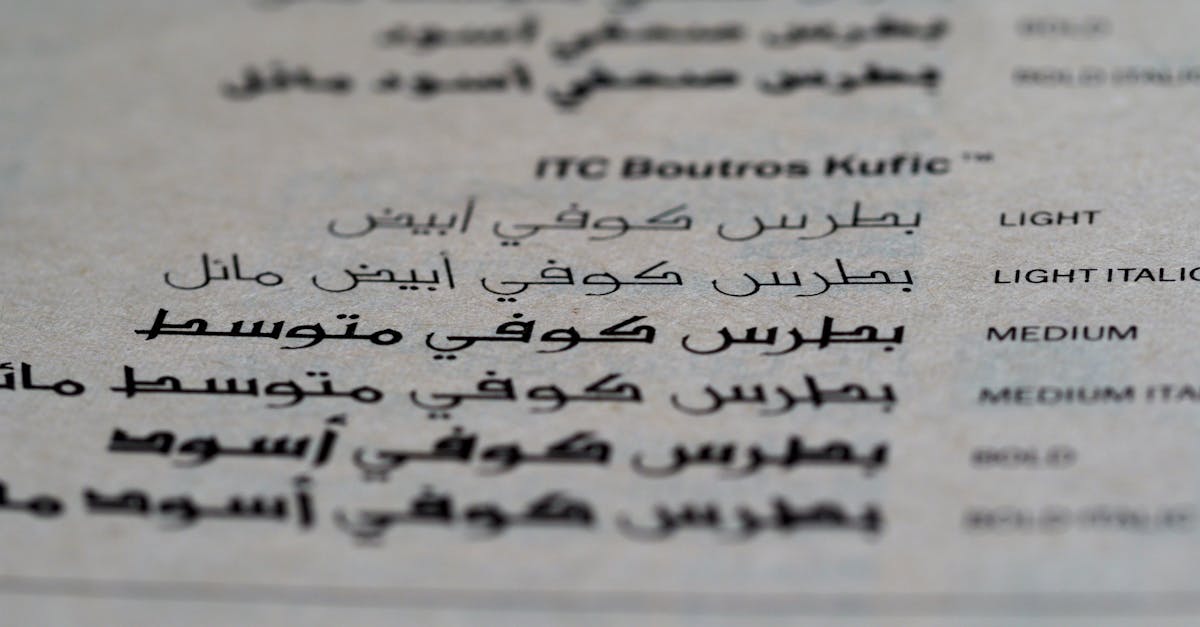 بطرس صحفي أسود BOLD
بطرس صحفي أسود مائل BOLD ITALIC
ITC Boutros Kufic ™
بطرس كوفي أبيض LIGHT
بطرس كوفي أبيض مائل LIGHT ITALIC
بطرس كوفي متوسط MEDIUM
بطرس كوفي متوسط مائ MEDIUM ITA
بطرس كوفي أسود BOLD
بطرس كوفي أسود ما BOLD ITALIC